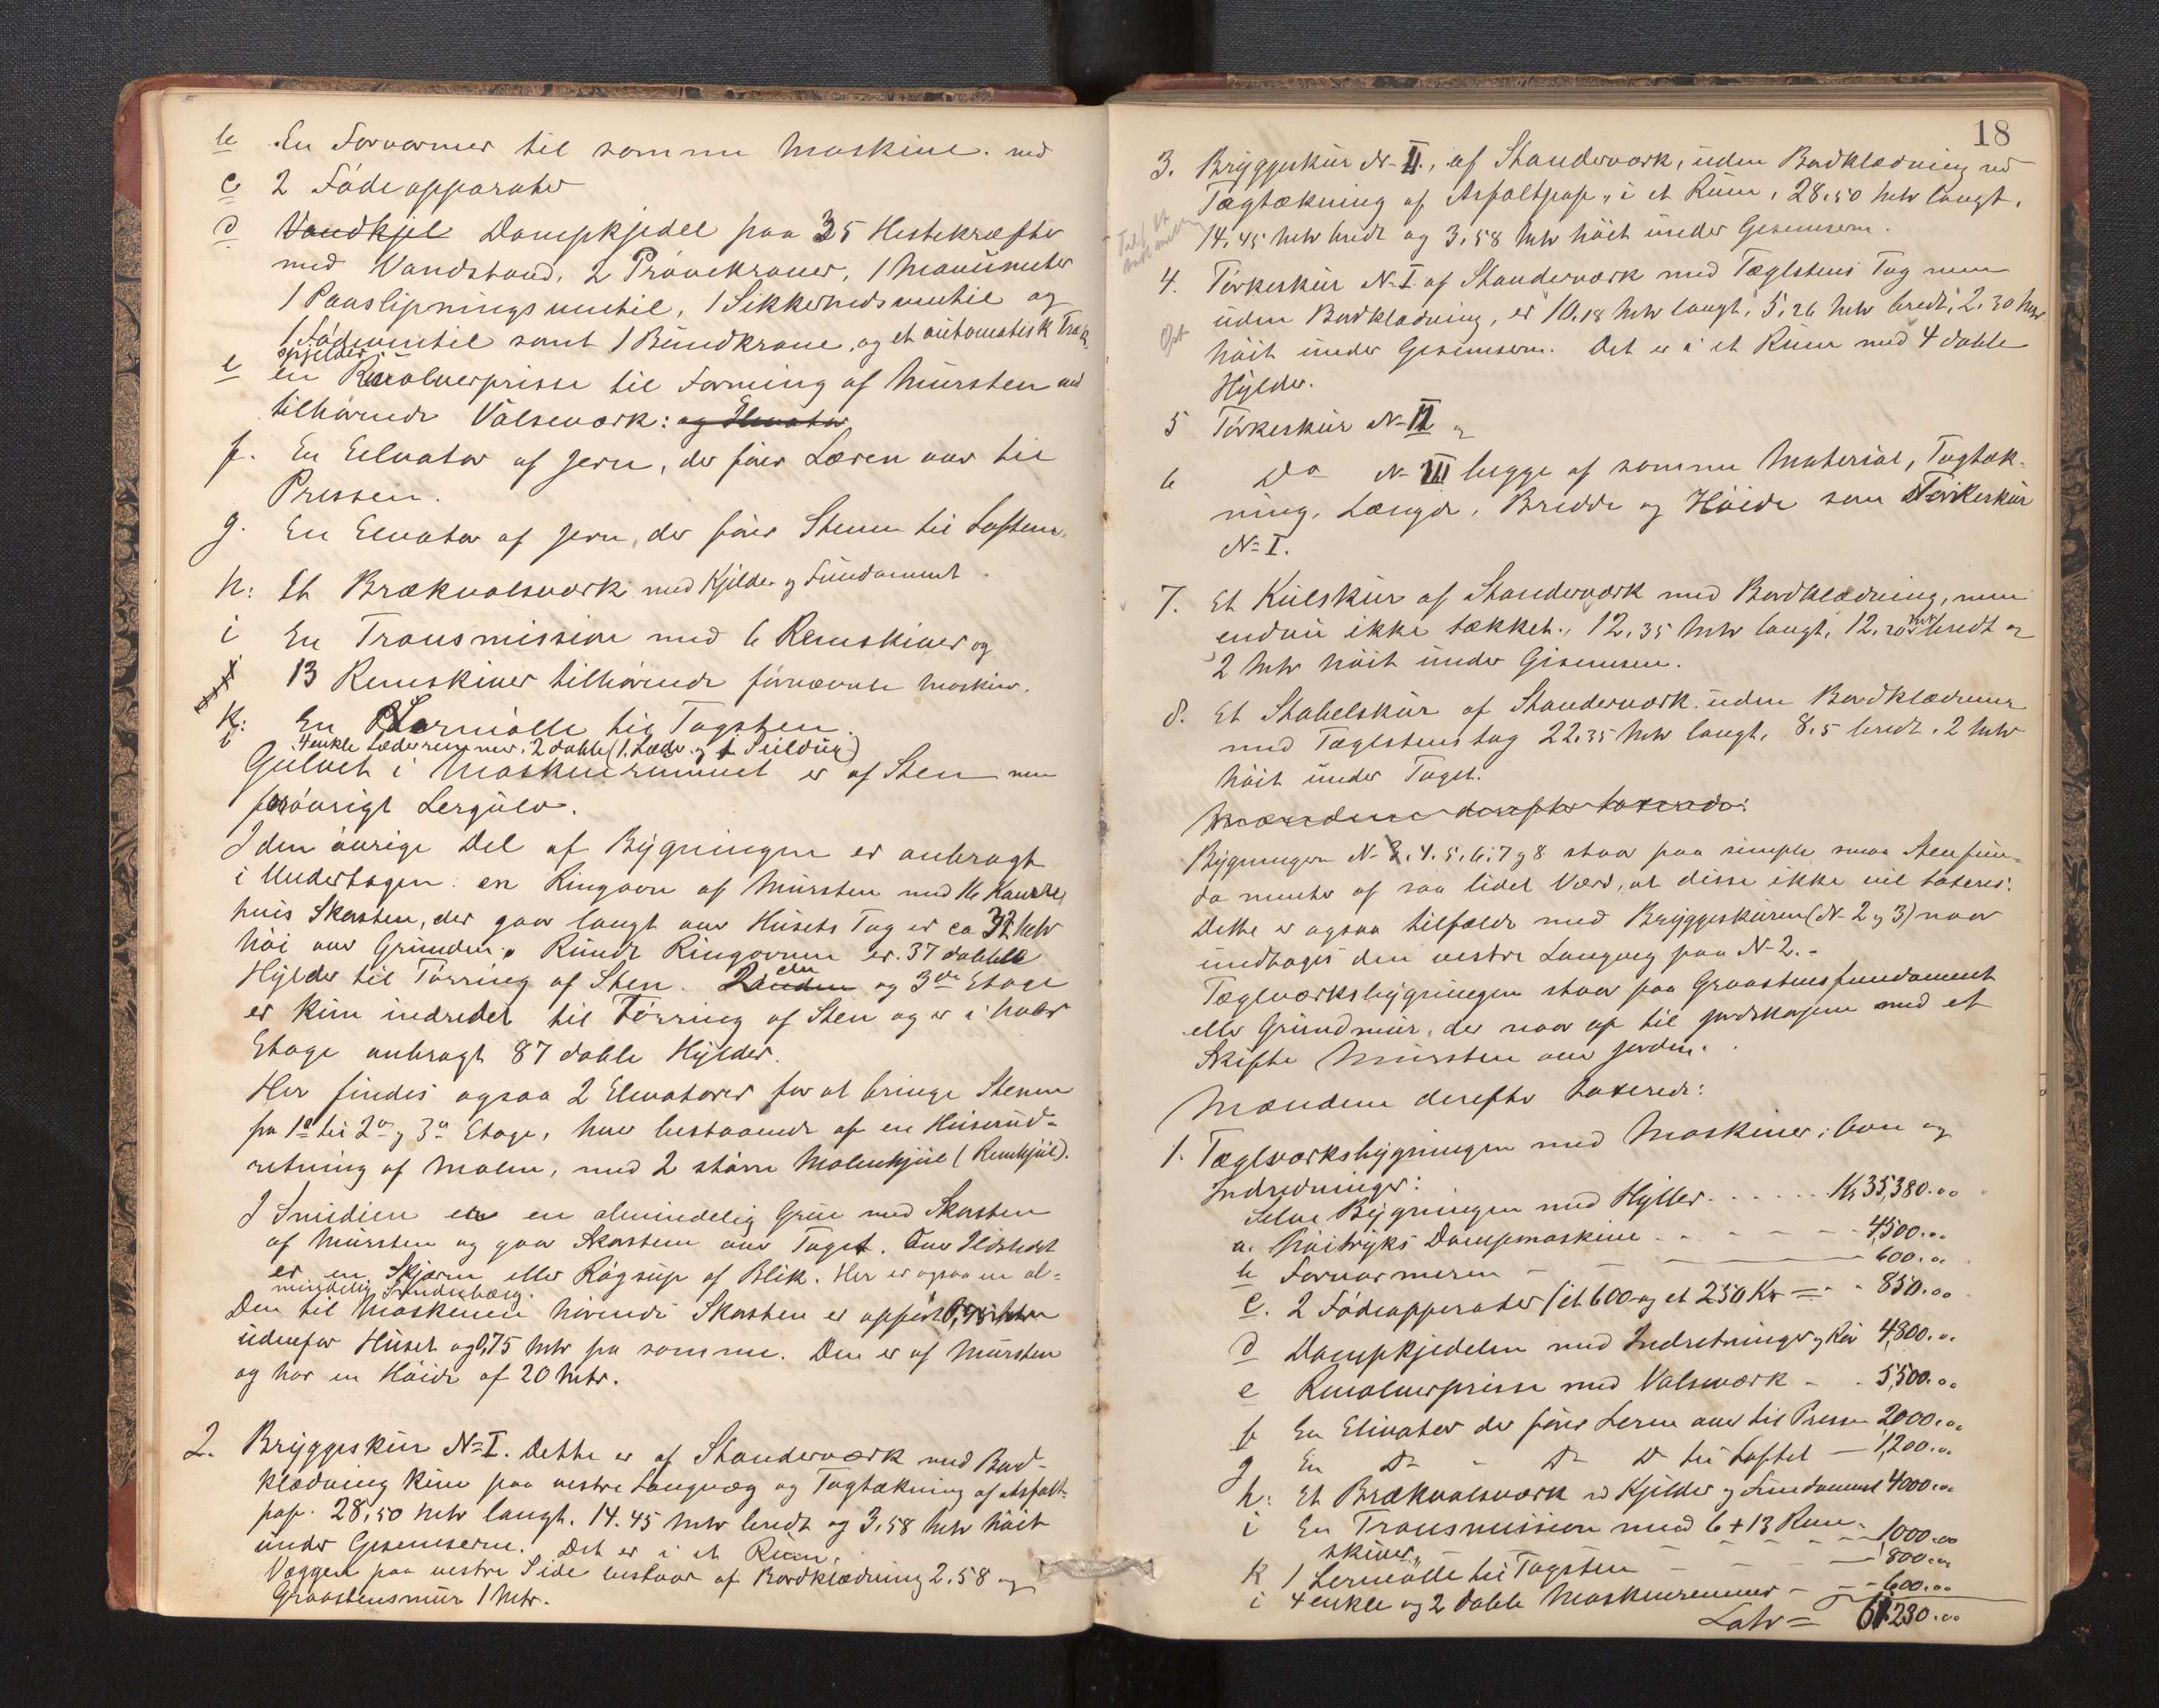 b En Forvarmer til samme Maskine. med
c 2 Födeapparater
d Vandkjel Dampkjedel paa 35 Hestekræfter
med Vandstand, 2 Prövekraner, 1 Manumeter
1 Paaslipningsventil, 1 Sikkerhedsventil og
1 Födeventil samt 1 Bundkrane, og et automatisk Træk-
spjelder.
e en Revolverpresse til Forming af Mursten med
tilhörende Valseværk: og Elevator
f. En Elevator af Jern, der förer Leren over til
Pressen.
g. En Elevator af Jern, der förer Stenen til Loftene.
h: Et Brækvalsværk med Kjelder og Fundament.
i En Transmission med 6 Remskiver og
13 Remskiver tilhörende fornævnte Maskiner.
k: En Lermölle til Tagsten.
i 4 enkle Læderremmer, 2 doble (1 Læder og 1 Seildug)
Gulvet i Maskinrummet er af Sten men
forövrigt Lergulv.
I den övrige Del af Bygningen er anbragt
i Underetagen: en Ringovn af Mursten med 16 Kamre
hvis Skorsten, der gaar langt over Husets Tag er ca 32 Metr
höi over Grunden. Rundt Ringovnen er 37 dobble
Hylder til Törring af Sten. 2den og 3die Etage
er kun indredet til Törring af Sten og er i hver
Etage anbragt 87 doble Hylder.
Her findes ogsaa 2 Elevatorer for at bringe Stenene
fra 1ste til 2den og 3die Etage, hver bestaaende af en Heiseind-
retning af Malm, med 2 större Malmhjul (Remhjul).
I Smidien er en almindelig Grue med Skorsten
af Mursten og gaar Skorstenen over Taget. Over Ildstedet
er en Skjærm eller Rögsup af Blik. Her er ogsaa en al-
mindelig Smidebælg.
Den til Maskinen hörende Skorsten er opfört
udenfor Huset og 0,75 Metr fra samme. Den er af Mursten
og har en Höide af 20 Metr.
2. Bryggeskur No I. Dette er af Standerværk med Bord-
klædning kun paa vestre Langvæg og Tagtækning af Asfalt-
pap. 28,50 Metr langt. 14.45 Metr bredt og 3,58 Metr höit
under Gesemserne. Det er i et Rum.
Væggen paa vestre Side bestaar af Bordklædning 2.58 og
Graastensmur 1 Metr.
18
3. Bryggeskur No II, af Standerværk, uden Bordklædning med
Tagtækning af Asfaltpap, i et Rum, 28,50 Metr langt,
14,45 Metr bredt og 3,58 Metr höit under Gesemserne.
4. Törkeskur No I af Standerværk med Tæglstens Tag men
uden Bordklædning, er 10.18 Metr langt, 5,26 Metr bredt, 2,30 Metr
höit under Gesemserne. Det er i et Rum med 4 doble
Hylder.
5 Törkeskur No II og
6 Do No III begge af samme Material, Tagtæk-
ning, Længde, Bredde og Höide som Törkeskur
No I.
7. Et Kulskur af Standerværk med Bordklædning, men
endnu ikke tækket., 12,35 Metr langt, 12,20 Metr bredt og
2 Metr höit under Gesemsen.
8. Et Stabelskur af Standerværk uden Bordklædning
med Tæglstenstag 22,35 Metr langt, 8,5 bredt, 2 Metr
höit under Taget.
Mændene derefter taxerede:
Bygningen No 3, 4, 5, 6, 7 og 8 staar paa simple smaa Stenfun-
damenter af saa lidet Værd, at disse ikke vil taxeres.
Dette er ogsaa tilfælde med Bryggeskuren (No 2 og 3) naar
undtages den vestre Langvæg paa No 2.
Tæglværksbygningen staar paa Graastensfundament
eller Grundmur, der naar op til Jordskorpen med et
Skifte Mursten over Jorden.
Mændene derefter taxerede:
1. Tæglværksbygningen med Maskiner, Ovn og
Indredninger:
Selve Bygningen med Hyller. . . . . . Kr 35,380.00
a. Höitryks Dampmaskine . . - - - 4,500.00
b Forvarmeren - - - 600.00
c. 2 Födeapperater (et 600 og et 250 Kr = - - 850.00
d Dampkjedelen med Indretninger og Rör 4,800.00
e Revolverpresse med Valseværk - - 5,500.00
f En Elevator der förer Leren over til Pressen 2000.00
g En Do - Do Do til Loftet - 1,200.00
h: Et Brækvalsværk med Kjelder og Fundament 4000.00
i En Transmission med 6 + 13 Rem-
skiver - - - - 1000.00
k 1 Lermölle til Tagsten - - - 800.00
i 4 enkle og 2 doble Maskinremmer - - 600.00
Latr = 61.230.00